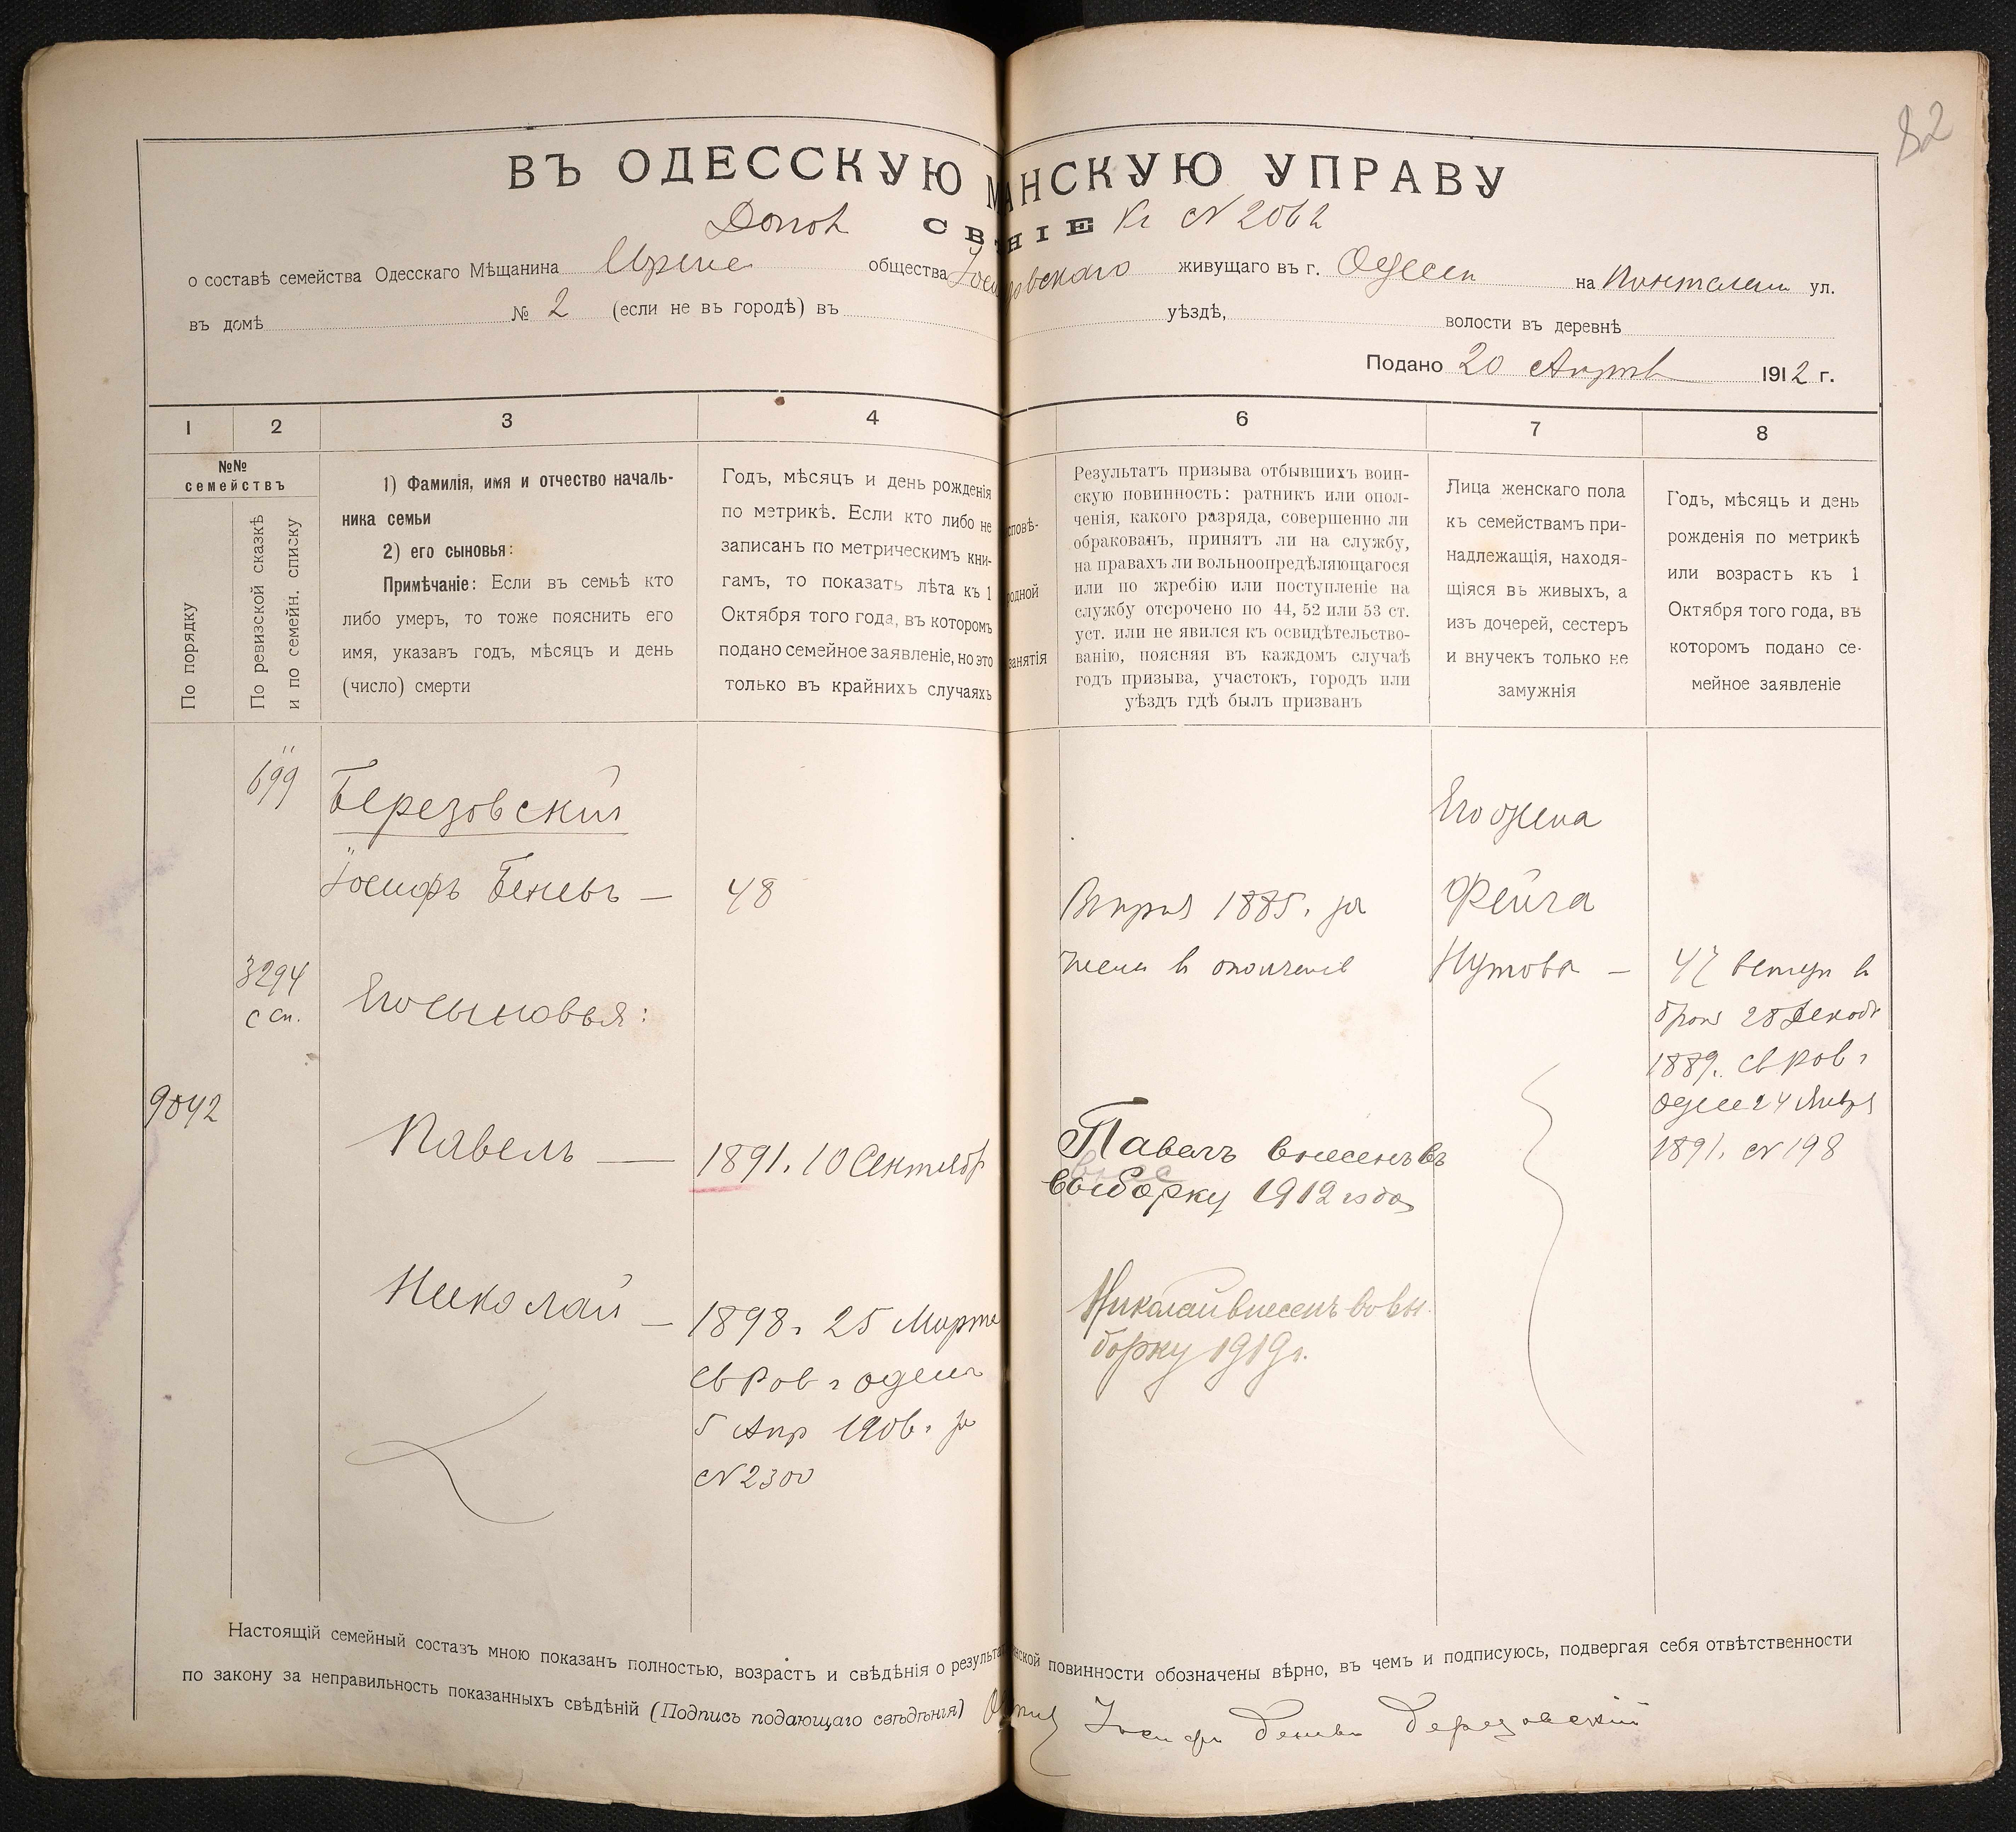 82
ВЪ ОДЕССКУЮ МАНСКУЮ УПРАВУ
СВ НІЕ К № 2062
о составѣ семейства Одесскаго Мѣщанина общества живущаго въ г. Одессѣ на ул.
въ домѣ № 2 (если не въ городѣ) въ уѣздѣ, волости въ деревнѣ
Подано 20 1912 г.
1 2 3 4 6 7 8
№№
семействъ
По порядку
По ревизской сказкѣ
и по семейн. списку
1) Фамилія, имя и отчество началь-
ника семьи
2) его сыновья:
Примѣчаніе: Если въ семьѣ кто
либо умеръ, то тоже пояснить его
имя, указавъ годъ, мѣсяцъ и день
(число) смерти
Годъ, мѣсяцъ и день рожденія
по метрикѣ. Если кто либо не
записанъ по метрическимъ кни-
гамъ, то показать лѣта къ 1
Октября того года, въ которомъ
подано семейное заявленіе, но это
только въ крайнихъ случаяхъ
повѣ-
одной
занятія
Результатъ призыва отбывшихъ воин-
скую повинность: ратникъ или опол-
ченія, какого разряда, совершенно ли
обракованъ, принятъ ли на службу,
на правахъ ли вольноопредѣляющагося
или по жребію или поступленіе на
службу отсрочено по 44, 52 или 53 ст.
уст. или не явился къ освидѣтельство-
ванію, поясняя въ каждомъ случаѣ
годъ призыва, участокъ, городъ или
уѣздъ гдѣ былъ призванъ
Лица женскаго пола
къ семействамъ при-
надлежащія, находя-
щіяся въ живыхъ, а
изъ дочерей, сестеръ
и внучекъ только не
замужнія
Годъ, мѣсяцъ и день
рожденія по метрикѣ
или возрастъ къ 1
Октября того года, въ
которомъ подано се-
мейное заявленіе
699
Березовскій
Іосифъ Беневъ — 48
1885.
Его жена
Фейга
Нутова —
47 вступ в
брак 28 Декабр
1889. св Рав.
Одесс 24 Января
1891. № 198
3294
с сп.
Его сыновья:
9042
Павелъ — 1891. 10 Сентябр
Павелъ внесенъ въ
выборку 1912 года
Николай — 1898. 25 Марта
св Рав. Одесск
5 Апр 1906. за
№ 2300
Николай внесенъ во вы-
борку 1919 г.
Настоящій семейный составъ мною показанъ полностью, возрастъ и свѣдѣнія о результат нской повинности обозначены вѣрно, въ чемъ и подписуюсь, подвергая себя отвѣтственности
по закону за неправильность показанныхъ свѣдѣній (Подпись подающаго свѣдѣнія) Іосифъ Беневъ Березовскій